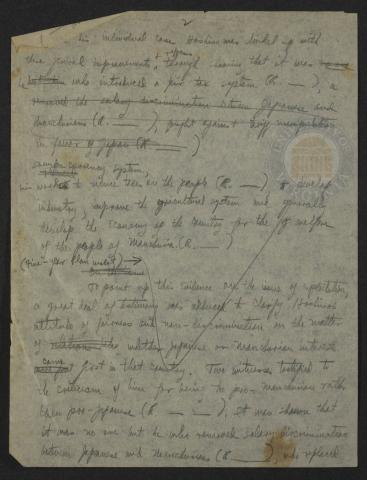 2
his individual case Hoshino was linked up with
these general improvements & reforms through showing that it was
he who introduced a fair tax system (R. __), a
removed the salary discrimination between Japanese and
Manchurians (R. __), fought against tariff manipulation
in favor of Japan (R. __)
sound currency system,
him worked to reduce taxes on the people (R. __) to develop
industry improve the agricultural system and generally
develop the economy of the country for the welfare
of the people of Manchuria (R. __)
(Five-year Plan
To point up this evidence on the issue of exploitation,
a great deal of testimony was adduced to clarify Hoshino's
attitude of fairness and non-discrimination in the matter
of whether Japanese or Manchurian interests
came first in that country. Two witnesses testified to
the criticism of him for being too pro-Manchurian rather
than pro-Japanese (R. __ __), it was shown that
it was no one but he who removed salary discrimination
between Japanese and Manchurians (R. __), who replaced